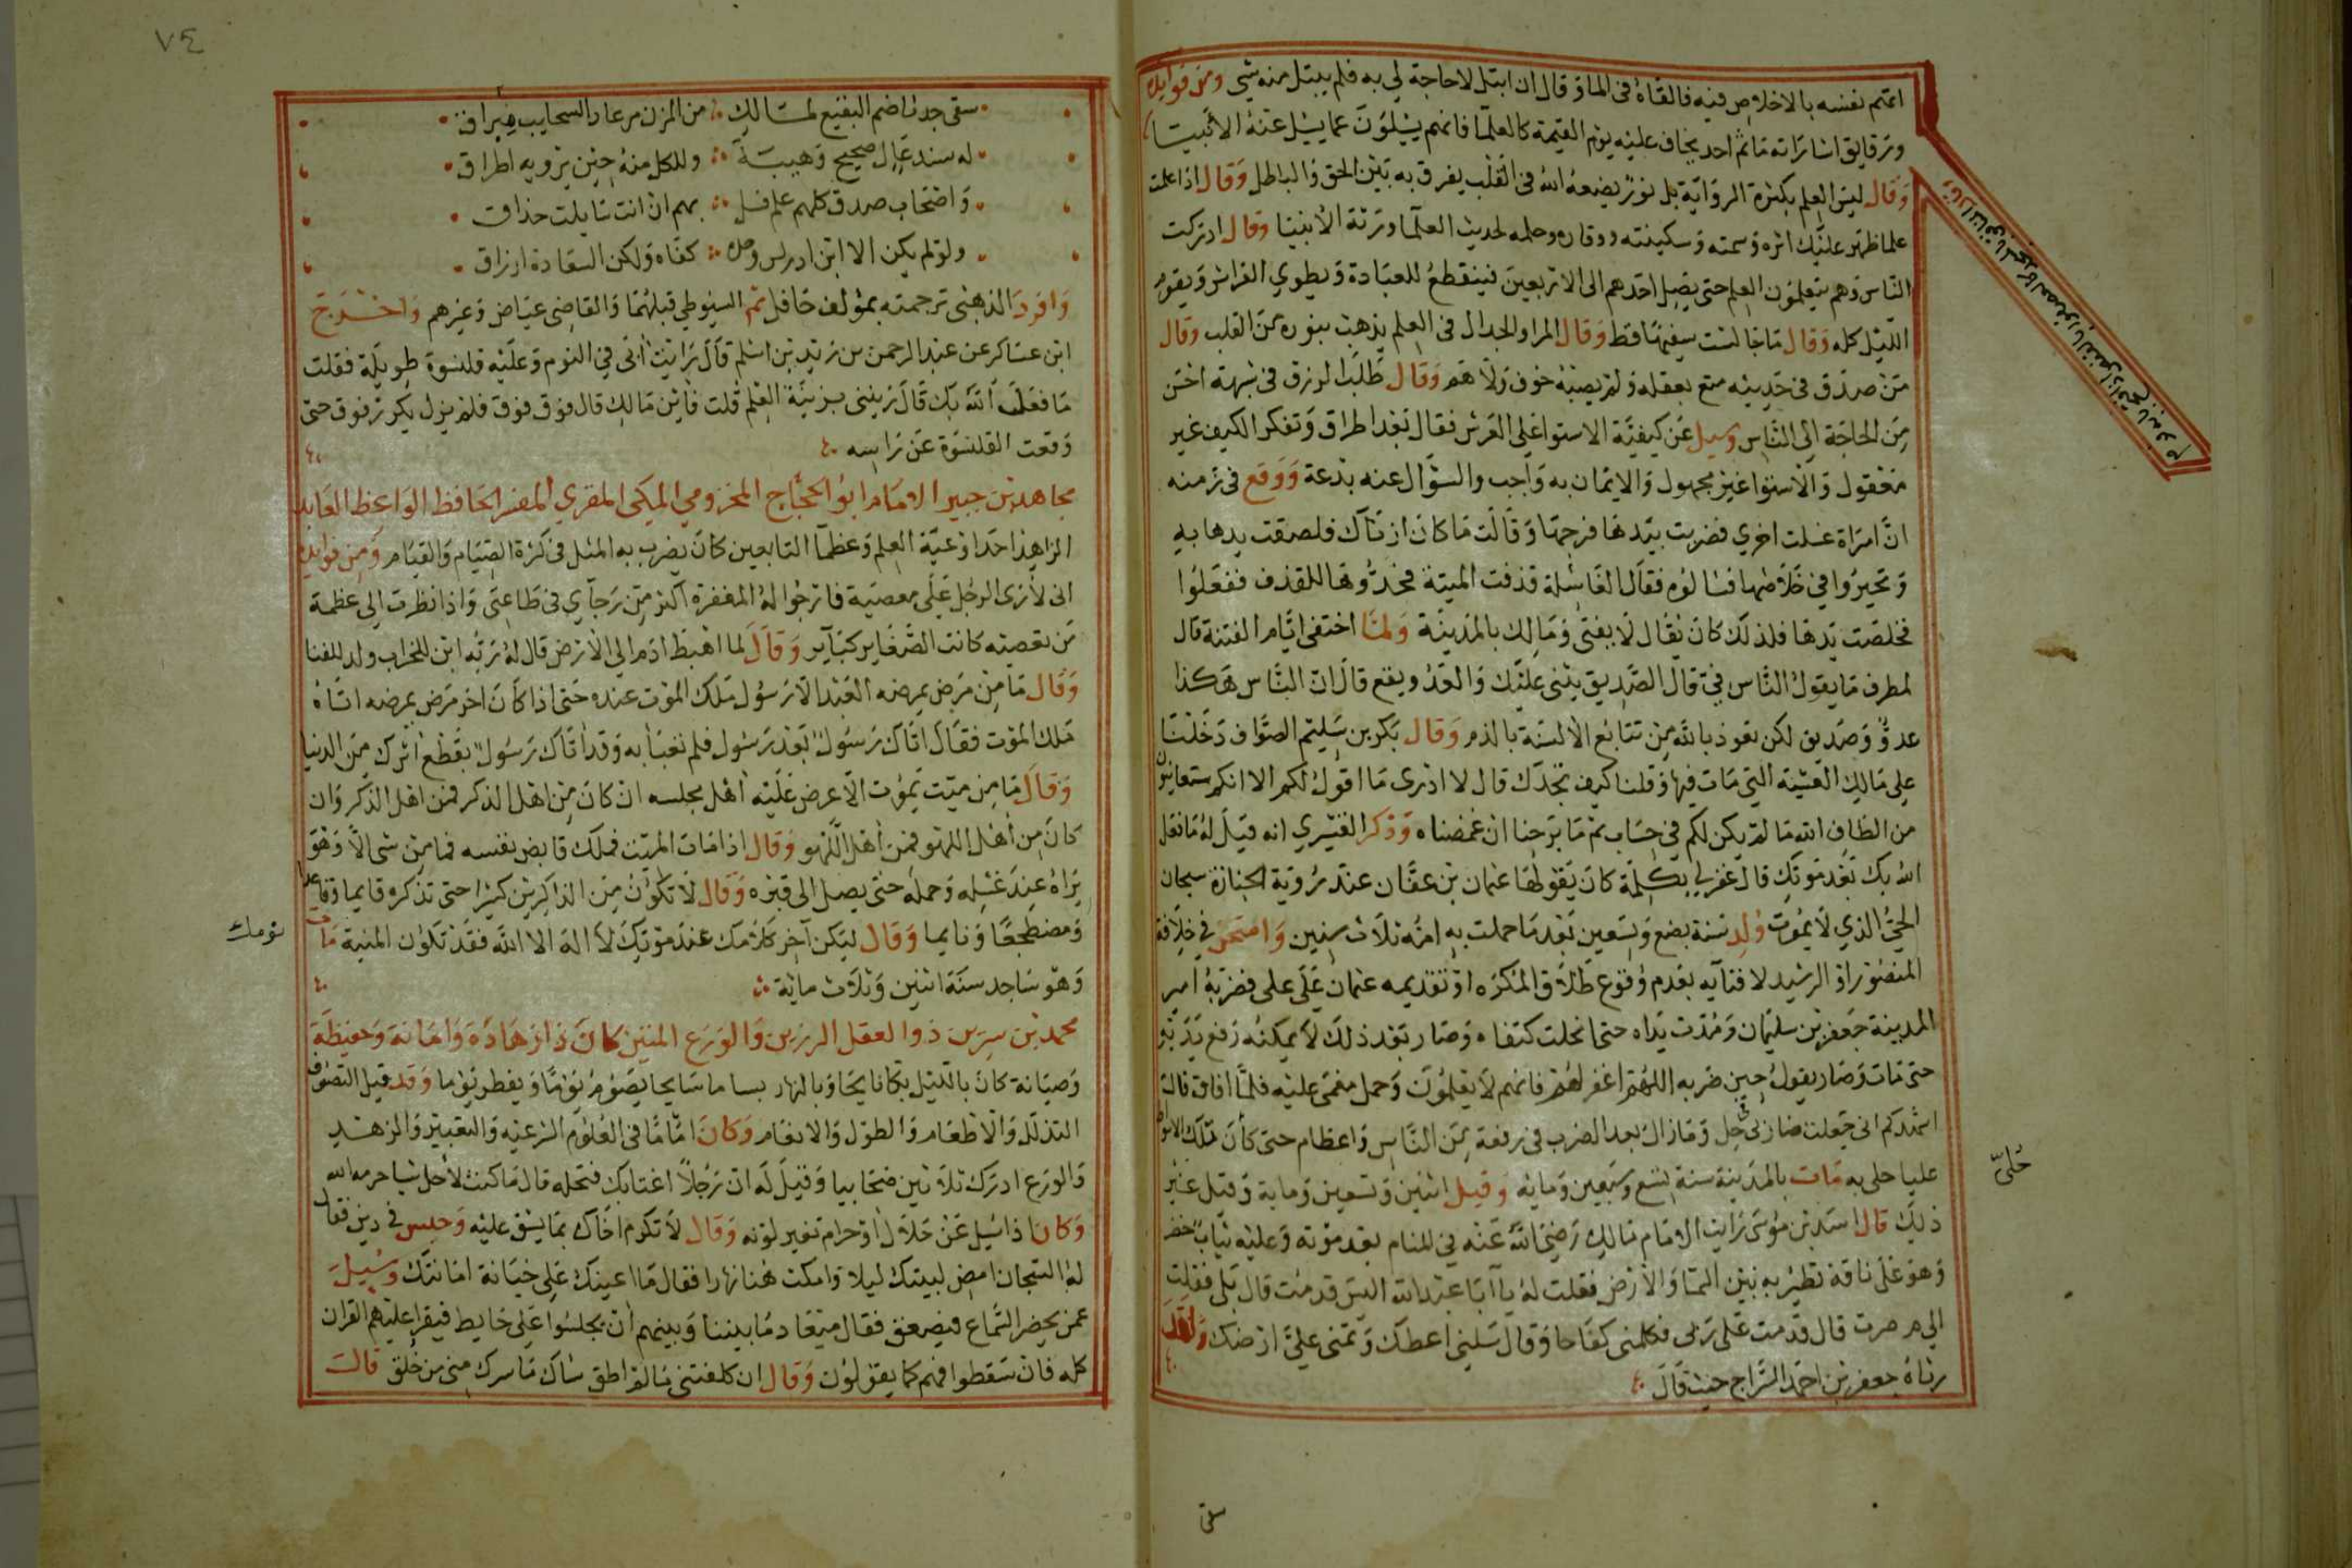 اتهم نفسه بالاخلاص فيه فالقاه فى الما وقال ان ابتل لاحاجة لي به فلم يبتل منه شي ومن فوايده
ورقايق اشاراته ما ثم احد يخاف عليه يوم القيمة كالعلما فانهم يسئلون عما يسئل عنه الانبيا
وقال ليس العلم بكثرة الرواية بل نور يضعه الله فى القلب يفرق به بين الحق والباطل وقال اذا علمت
علما ظهر عليك اثره وسمته وسكينته ووقاره وحلمه لحديث العلما ورثة الانبيا وقال ادركت
الناس وهم يتعلمون العلم حتى يصل احدهم الى الاربعين فينقطع للعبادة ويطوي الفراش ويقوم
الليل كله وقال ما جالست سفيها قط وقال المرا والجدال فى العلم يذهب بنوره من القلب وقال
من صدق فى حديثه متع بعقله ولم يصبه خوف ولا هم وقال طلب الرزق فى شبهة احسن
من الحاجة الى الناس وسيل عن كيفية الاستوا على العرش فقال بعد اطراق وتفكر الكيف غير
معقول والاستوا غير مجهول والايمان به واجب والسؤال عنه بدعة ووقع فى زمنه
ان امراة غسلت اخري فضربت بيدها فرجها وقالت ما كان ازناك فلصقت يدها به
وتحيروا في خلاصها فسالوه فقال الغاسلة قذفت الميتة فحدوها للقذف ففعلوا
فخلصت يدها فلذلك كان يقال لا يفتى ومالك بالمدينة ولما اختفى ايام الفتنة قال
لمطرف ما يقول الناس في قال الصديق يثني عليك والعدو يقع قال ان الناس هكذا
عدو وصديق لكن نعوذ بالله من تتابع الالسنة بالذم وقال بكر بن سليم الصواف دخلنا
على مالك العشية التي مات فيها وقلنا كيف تجدك قال لا ادرى ما اقول لكم الا انكم ستعاينون
من الطاف الله ما لم يكن لكم في حساب ثم ما برحنا ان غمضناه وذكر القشيري انه قيل له ما فعل
الله بك بعد موتك قال غفر لي بكلمة كان يقولها عثمان بن عفان عند رؤية الجنازة سبحان
الحي الذي لا يموت ولد سنة بضع وتسعين بعد ما حملت به امه ثلاث سنين وامتحن في خلافة
المنصور او الرشيد لافتايه بعدم وقوع طلاق المكره او تقديمه عثمان على على فضربه امير
المدينة جعفر بن سليمان ومدت يداه حتى انحلت كتفاه وصار بعد ذلك لا يمكنه رفع يديه
حتى مات وصار يقول حين ضربه اللهم اغفر لهم فانهم لا يعلمون وحمل مغمى عليه فلما افاق قال
اشهدكم انى جعلت ضاربى في حل وما زال بعد الضرب فى رفعة من الناس واعظام حتى كأن تلك الاسواط
عليا حلى به مات بالمدينة سنة تسع وسبعين ومائه وقيل اثنين وتسعين وماية وقيل غير
ذلك قال اسد بن موسى رايت الامام مالك رضي الله عنه في المنام بعد موته وعليه ثياب خضر
وهو على ناقة تطير به بين السما والارض فقلت له يا ابا عبد الله اليس قد مت قال بلى فقلت
الي م صرت قال قدمت على ربى فكلمنى كفاحا وقال سلني اعطك وتمنى علي ارضك ولقد
رثاه جعفر بن احمد السراج حيث قال
حلي
سقى
٧٤
سقى جدثا ضم البقيع لمالك من المزن مرعاد السحايب مبراق
له سند عال صحيح وهيبة وللكل منه حين يرويه اطراق
واصحاب صدق كلهم علم فسل بهم ان انت سايلت حذاق
ولو لم يكن الا ابن ادريس وحده كفاه ولكن السعادة ارزاق
وافرد الذهبى ترجمته بمؤلف حافل ثم السيوطي قبلهما والقاضى عياض وغيرهم واخرج
ابن عساكر عن عبد الرحمن بن زيد بن اسلم قال رايت ابى في النوم وعليه قلنسوة طويلة فقلت
ما فعل الله بك قال زينني بزينة العلم قلت فاين مالك قال فوق فوق فلم يزل يكرر فوق حتى
وقعت القلنسوة عن راسه
مجاهد بن جبير الامام ابو الحجاج المخزومي المكى المقري المفسر الحافظ الواعظ العابد
الزاهد احد اوعية العلم وعظما التابعين كان يضرب به المثل فى كثرة الصيام والقيام ومن فوايده
انى لأرى الرجل على معصية فارجوا له المغفرة اكثر من رجاي فى طاعتى واذا نظرت الى عظمة
من تعصيه كانت الصغاير كباير وقال لما اهبط ادم الى الارض قال له ربه ابن للخراب ولد للفنا
وقال ما من مرض يمرضه العبد الا رسول ملك الموت عنده حتى اذا كان اخر مرض يمرضه اتاه
ملك الموت فقال اتاك رسول بعد رسول فلم تعبأ به وقد اتاك رسول يقطع اثرك من الدنيا
وقال ما من ميت يموت الا عرض عليه اهل مجلسه ان كان من اهل الذكر فمن اهل الذكر وان
كان من اهل اللهو فمن اهل اللهو وقال اذا مات الميت فملك قابض نفسه فما من شى الا وهو
يراه عند غسله وحمله حتى يصل الى قبره وقال لا تكون من الذاكرين كثيرا حتى تذكره قايما وقاعدا
ومضطجعا ونايما وقال ليكن آخر كلامك عند موتك لا اله الا الله فقد تكون المنية مات
وهو ساجد سنة اثنين وثلاث ماية
محمد بن سيرين ذوا العقل الرزين والورع المتين كان ذا زهادة وامانة وحفيظة
وصيانة كان بالليل بكانايحا وبالنهار بساما سايحا يصوم يوما ويفطر يوما وقد قيل التصوف
التذلل والاطعام والطول والانعام وكان اماما فى العلوم الشرعيه والتعبير والزهد
والورع ادرك ثلاثين صحابيا وقيل له ان رجلا اغتابك فتحله قال ما كنت لأحل شيا حرمه الله
وكان اذا سيل عن حلال او حرام تغير لونه وقال لا تكرم اخاك بما يشق عليه وحبس في دين فقال
له السجان امض لبيتك ليلا وامكث هنا نهارا فقال ما اعينك على خيانة امانتك وسيل
عمن يحضر السماع فيصعق فقال ميعاد ما بيننا وبينهم ان يجلسوا على حايط فيقرا عليهم القران
كله فان سقطوا فهم كما يقولون وقال ان كلفتنى ما لم اطق ساك ما سرك منى من خلق قالت